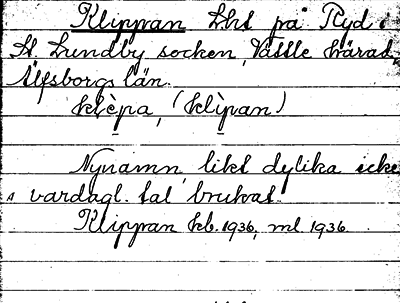 Klippan Lht på Ryd i
St. Lundby socken, Vättle härad,
Älfsborgs län.
klèpa, (klìpan)
Nynamn, likt dylika icke
i vardagl. tal brukat.
Klippan kb. 1936, ml. 1936